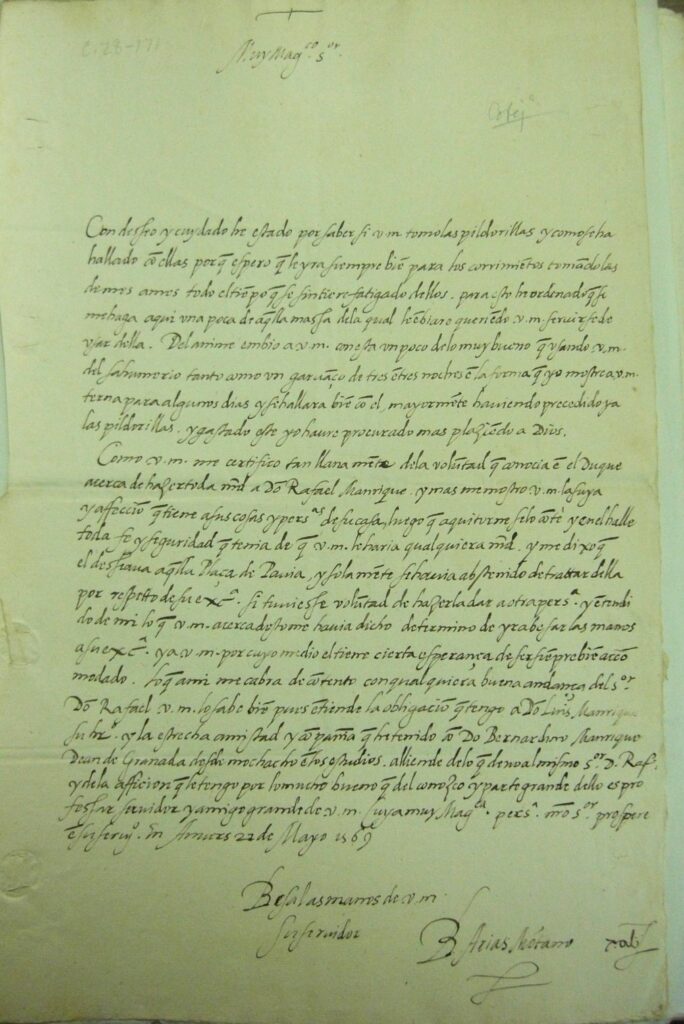 Muy Mag.co s.or
Cotej.o
Con desseo y cuydado he estado por saber si v.m. tomo las pildorillas y como se ha
hallado cō ellas porq̄ espero q̄ le yra siempre biē para los corrimiētos tomādo las
de mes a mes todo el tiēpo q̄ se sintiere fatigado dellos. para esto he ordenado q̄ se
me haga aqui vna poca de aq̄lla massa de la qual le ēbiare queriēdo v.m. seruirse de
vsar della. Del anime embio a v.m. con esta vn poco de lo muy bueno q̄ vsando v.m.
del sahumerio tanto como vn garuāço de tres ē tres noches ē la forma q̄ yo mostre a v.m.
terna para algunos dias y se hallara biē cō el, mayormēte hauiendo precedido ya
las pildorillas. y gastado este yo haure procurado mas plaziēdo a Dios.
Como v.m. me certifico tan llana mēte de la volūtad q̄ conocia ē el Duque
acerca de hazer toda m̄d a Dō Rafael Manrique. y mas me mostro v.m. la suya
y affecciō q̄ tiene a sus cosas y pers.as de su casa, luego q̄ aqui torne se lo cōte y en el halle
toda fe y seguridad q̄ tenia de q̄ v.m. le haria qualquiera m̄d, y me dixo q̄
el desseaua aq̄lla Plaça de Pauia, y sola mēte se hauia abstenido de trattar della
por respetto de su exc.ᵃ si tuuiesse volūtad de hazerla dar a otra pers.a y entendi
do de mi lo q̄ v.m. acerca desto me hauia dicho determino de yr a besar las manos
a su exc.ᵃ y a v.m. por cuyo medio el tiene cierta esperança de ser siēpre biē aco
modado. Lo q̄ a mi me cabra de cōtento con qualquiera buena andāça del s.or
Dō Rafael v.m. lo sabe biē pues ētiende la obligaciō q̄ tengo a Dō Luis Manrique
su hr.o y la estrecha amistad y cōpañia q̄ he tenido cō Dō Bernardino Manrique
Dean de Granada desde mochacho ē los estudios, alliende de lo q̄ deuo al mismo s.or D. Raf.l
y de la afficion q̄ le tengo por lo mucho bueno q̄ del conozco y parte grande dello es pro
fessar seruidor y amigo grande de v.m. suya muy Mag.ca pers.a n̄ro s.or prospere
ē su seru.o. Dn̄ Anuers 22 de Mayo 1569
Besa las manos de v.m.
su seruidor
B Arias Mōtano